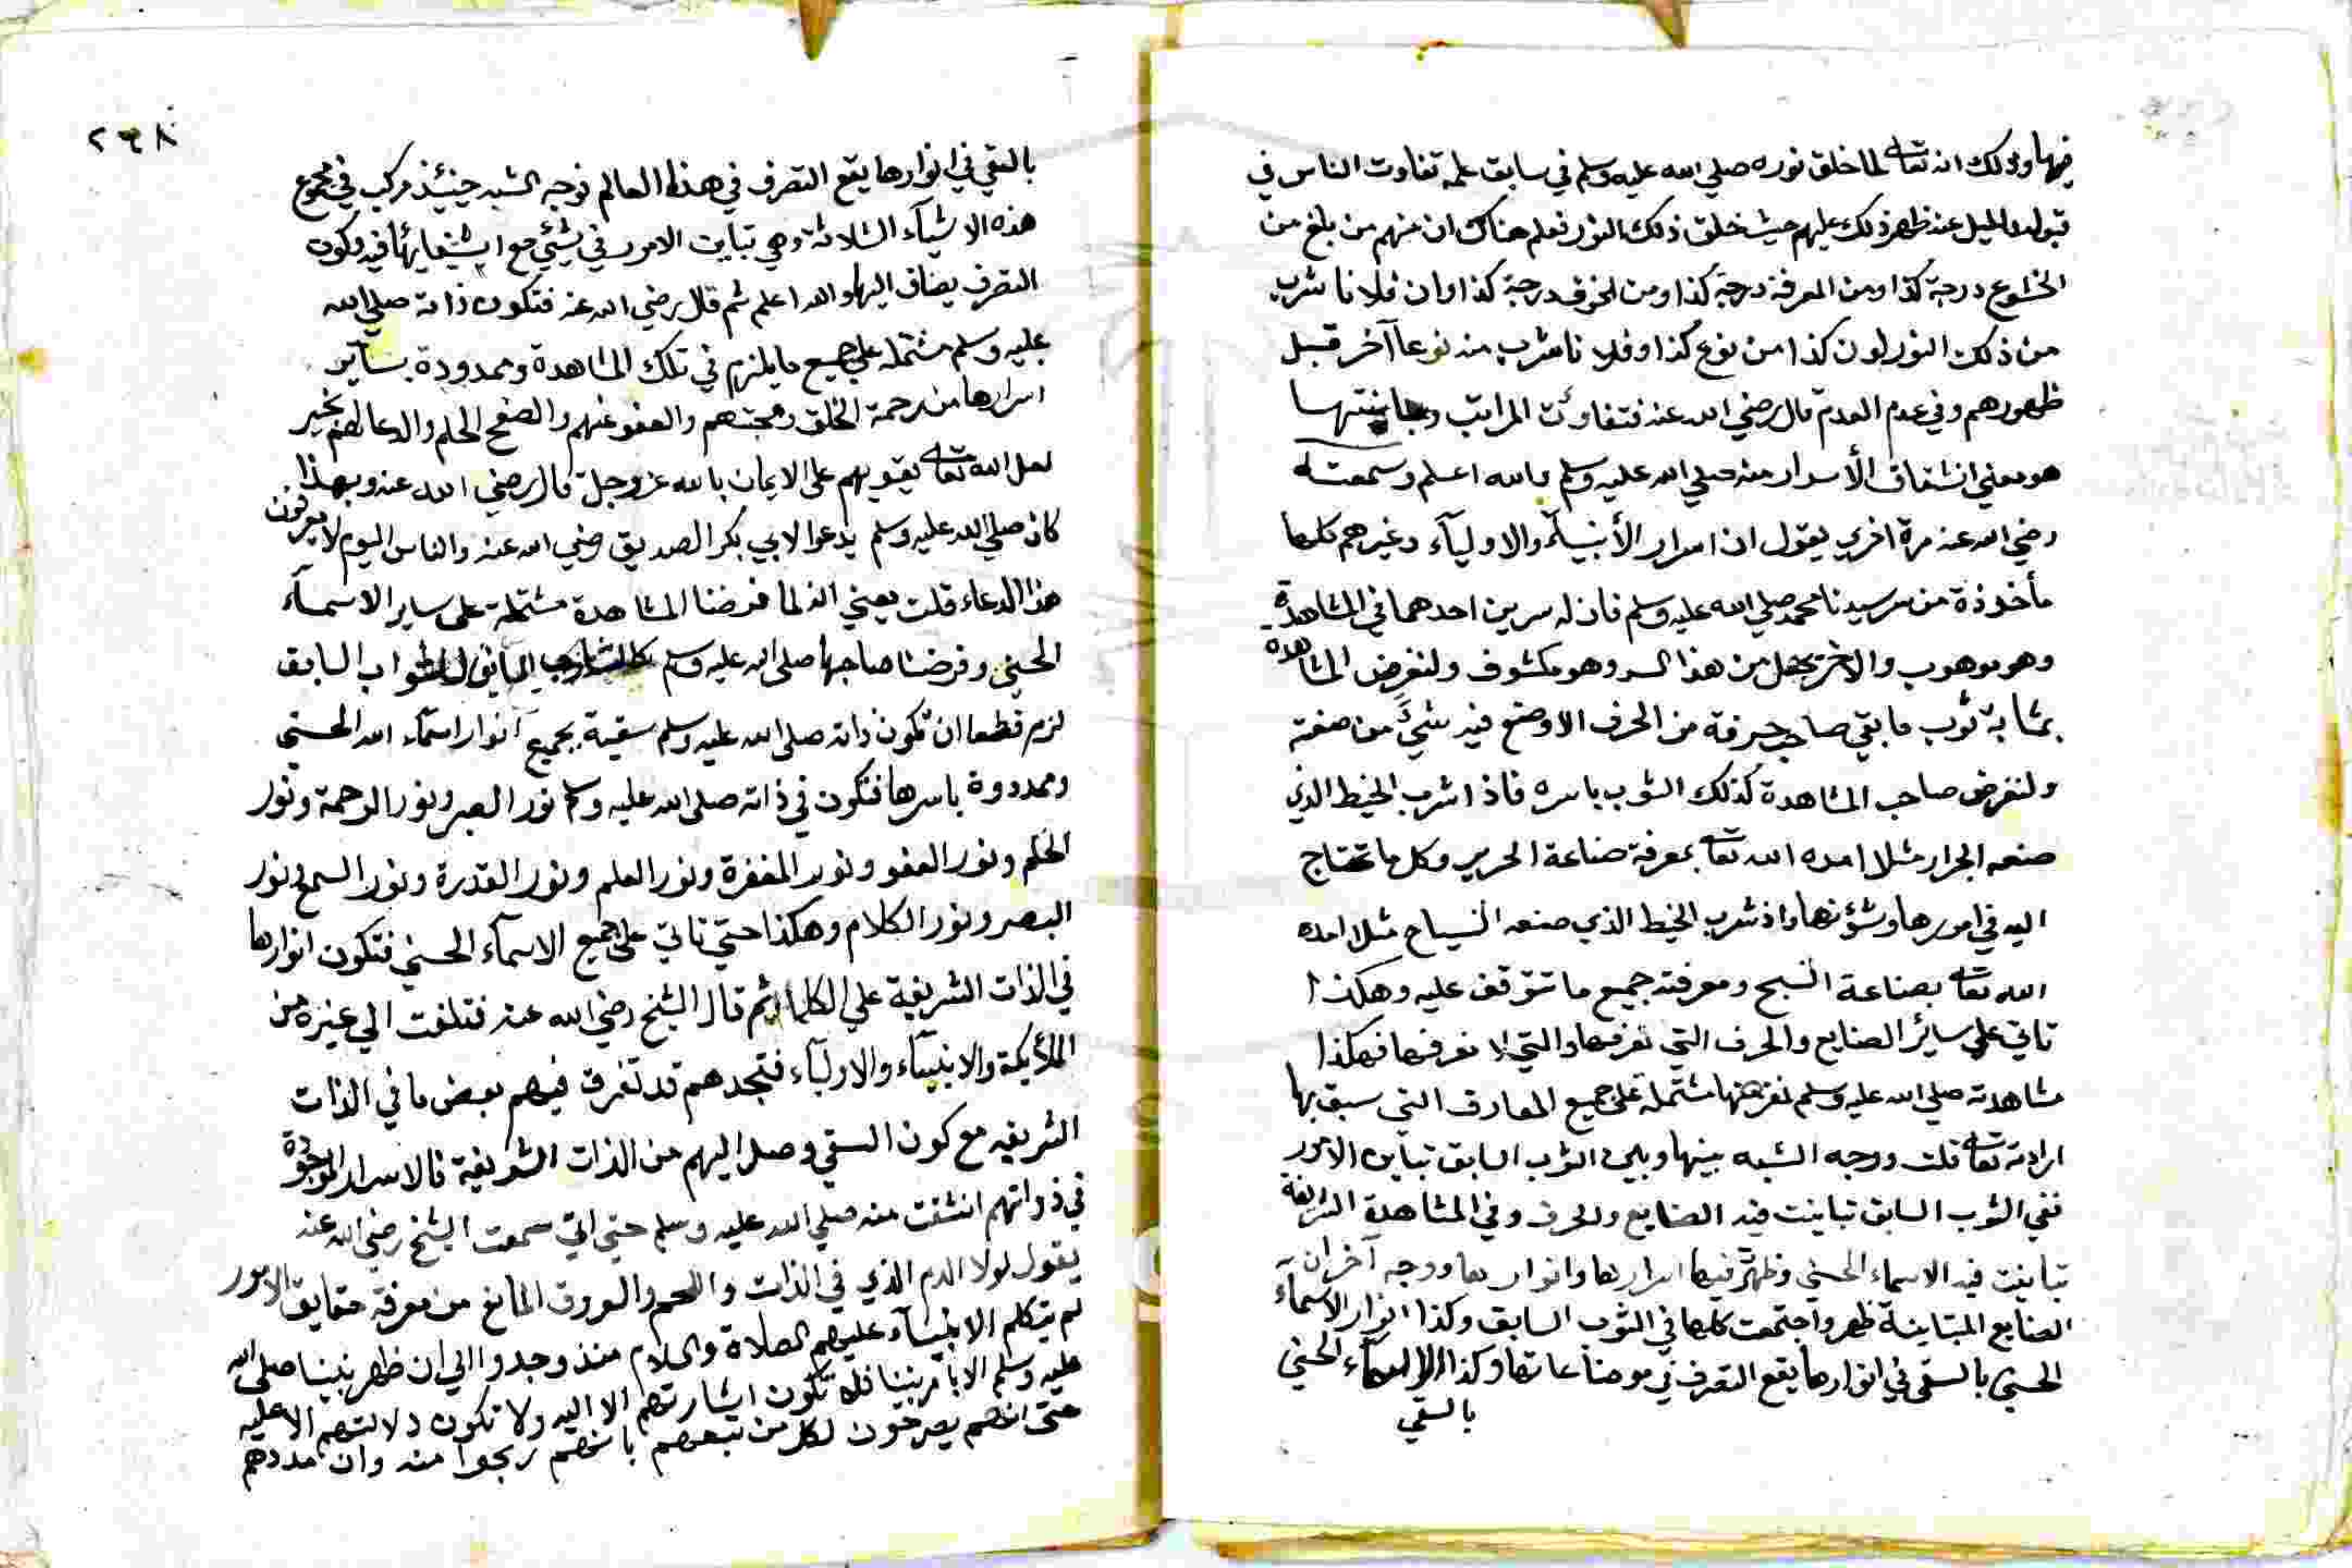 فيها وذلك انه تعالى لما خلق نوره صلي الله عليه وسلم في سابق علمه تفاوت الناس في
قبوله والميل عند ظهر ذلك عليهم حيث خلق ذلك النور فعلم هناك ان منهم من بلغ من
الخشوع درجة كذا ومن المعرفة درجة كذا ومن الخوف درجة كذا وان فلانا شرب
من ذلك النور لون كذا من نوع كذا وفلانا شرب منه نوعا آخر قبل
ظهورهم وفي عدم العدم قال رضي الله عنه فتفاوت المراتب
هو معني انشقاق الأسرار منه صلي الله عليه وسلم والله اعلم وسمعته
رضي الله عنه مرة اخري يقول ان اسرار الأنبيآء والاوليآء وغيرهم كلها
مأخوذة من سر سيدنا محمد صلي الله عليه وسلم فان له سرين احدهما في المشاهدة
وهو موهوب والاخر يحصل من هذا السر وهو مكسوف ولنفرض المشاهدة
بمثابة ثوب ما بقي صاحب حرفة من الحرف الا وضع فيه شيئ من صنعته
ولنفرض صاحب المشاهدة كذلك الثوب باسره فاذا شرب الخيط الذي
صنعه الجرار مثلا امده الله تعالى بمعرفة صناعة الحرير وكل ما تحتاج
اليه في امورها وشؤنها واذ شرب الخيط الذي صنعه النسياج مثلا امده
الله تعالى بصناعة النسج ومعرفة جميع ما تتوقف عليه وهكذا
تاتي علي سائر الصنايع والحرف التي نعرفها والتي لا نعرفها فهكذا
مشاهدته صلي الله عليه وسلم نفرضها مشتملة على جميع المعارف التي سبق بها
ارادته تعالى قلت ووجه الشبه بينها وبين الثوب السابق تباين الامور
ففي الثوب السابق تباينت فيه الصنايع والحرف وفي المشاهدة الشريفة
تباينت فيه الاسماء الحسني وظهرت فيها اسرارها وانوارها ووجه آخر ان
الصنايع المتباينة ظهر واجتمعت كلها في الثوب السابق وكذا انوار الاسمآء
الحسني بالسقي في انوارها يقع التصرف في موضاعاتها وكذا الاسمآء الحسني
بالسقي
٢٦٨
بالسقي في انوارها يقع التصرف في هذا العالم فوجه الشبه حينئذ مركب في مجموع
هذه الاشيآء الثلاثة وهي تباين الامور في شيئي مع استيفايها فيه وكون
التصرف يضاف اليها والله اعلم ثم قال رضي الله عنه فتكون ذاته صلي الله
عليه وسلم مشتملة علي جميع ما يلزم في تلك المشاهدة وممدودة بسآير
اسرارها من رحمة الخلق ومحبتهم والعفو عنهم والصفح الحلم والدعا لهم بخير
لعل الله تعالى يقويهم على الايمان بالله عز وجل قال رضي الله عنه وبهذا
كان صلي الله عليه وسلم يدعوا لابي بكر الصديق رضي الله عنه والناس اليوم لا يعرفون
هذا الدعاء قلت يعني انه لما فرضنا المشاهدة مشتملة على ساير الاسمآء
الحسني وفرضنا صاحبها صلى الله عليه وسلم السابق
لزم قطعا ان تكون ذاته صلى الله عليه وسلم سقية بجميع انوار اسمآء الله الحسني
وممدودة باسرها فتكون في ذاته صلى الله عليه وسلم نور الصبر ونور الرحمة ونور
الحلم ونور العفو ونور المغفرة ونور العلم ونور القدرة ونور السمع ونور
البصر ونور الكلام وهكذا حتي تاتي على جميع الاسمآء الحسني فتكون انوارها
في الذات الشريفة علي الكمال ثم قال الشيخ رضي الله عنه فتلفت الي غيره من
الملأيكة والانبيآء والاوليآء فتجدهم قد تفرق فيهم بعض ما في الذات
الشريفه مع كون السقي وصل اليهم من الذات الشريفة فالاسرار الموجودة
في ذواتهم انشقت منه صلي الله عليه وسلم حتي اني سمعت الشيخ رضي الله عنه
يقول لولا الدم الذي في الذات واللحم والعروق المانع من معرفة حقايق الامور
لم يتكلم الانبيآء عليهم الصلاة والسلام منذ وجدوا الي ان ظهر نبينا صلى الله
عليه وسلم الا بامر نبينا فلا تكون اشارتهم الا اليه ولا تكون دلالتهم الا عليه
حتى انهم يصرحون لكل من تبعهم بانهم ربحوا منه وان مددهم